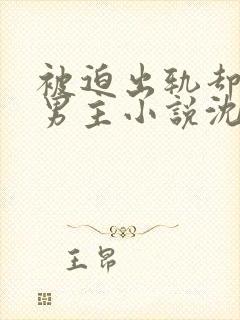 被迫出轨却
男主小說沈
王昂